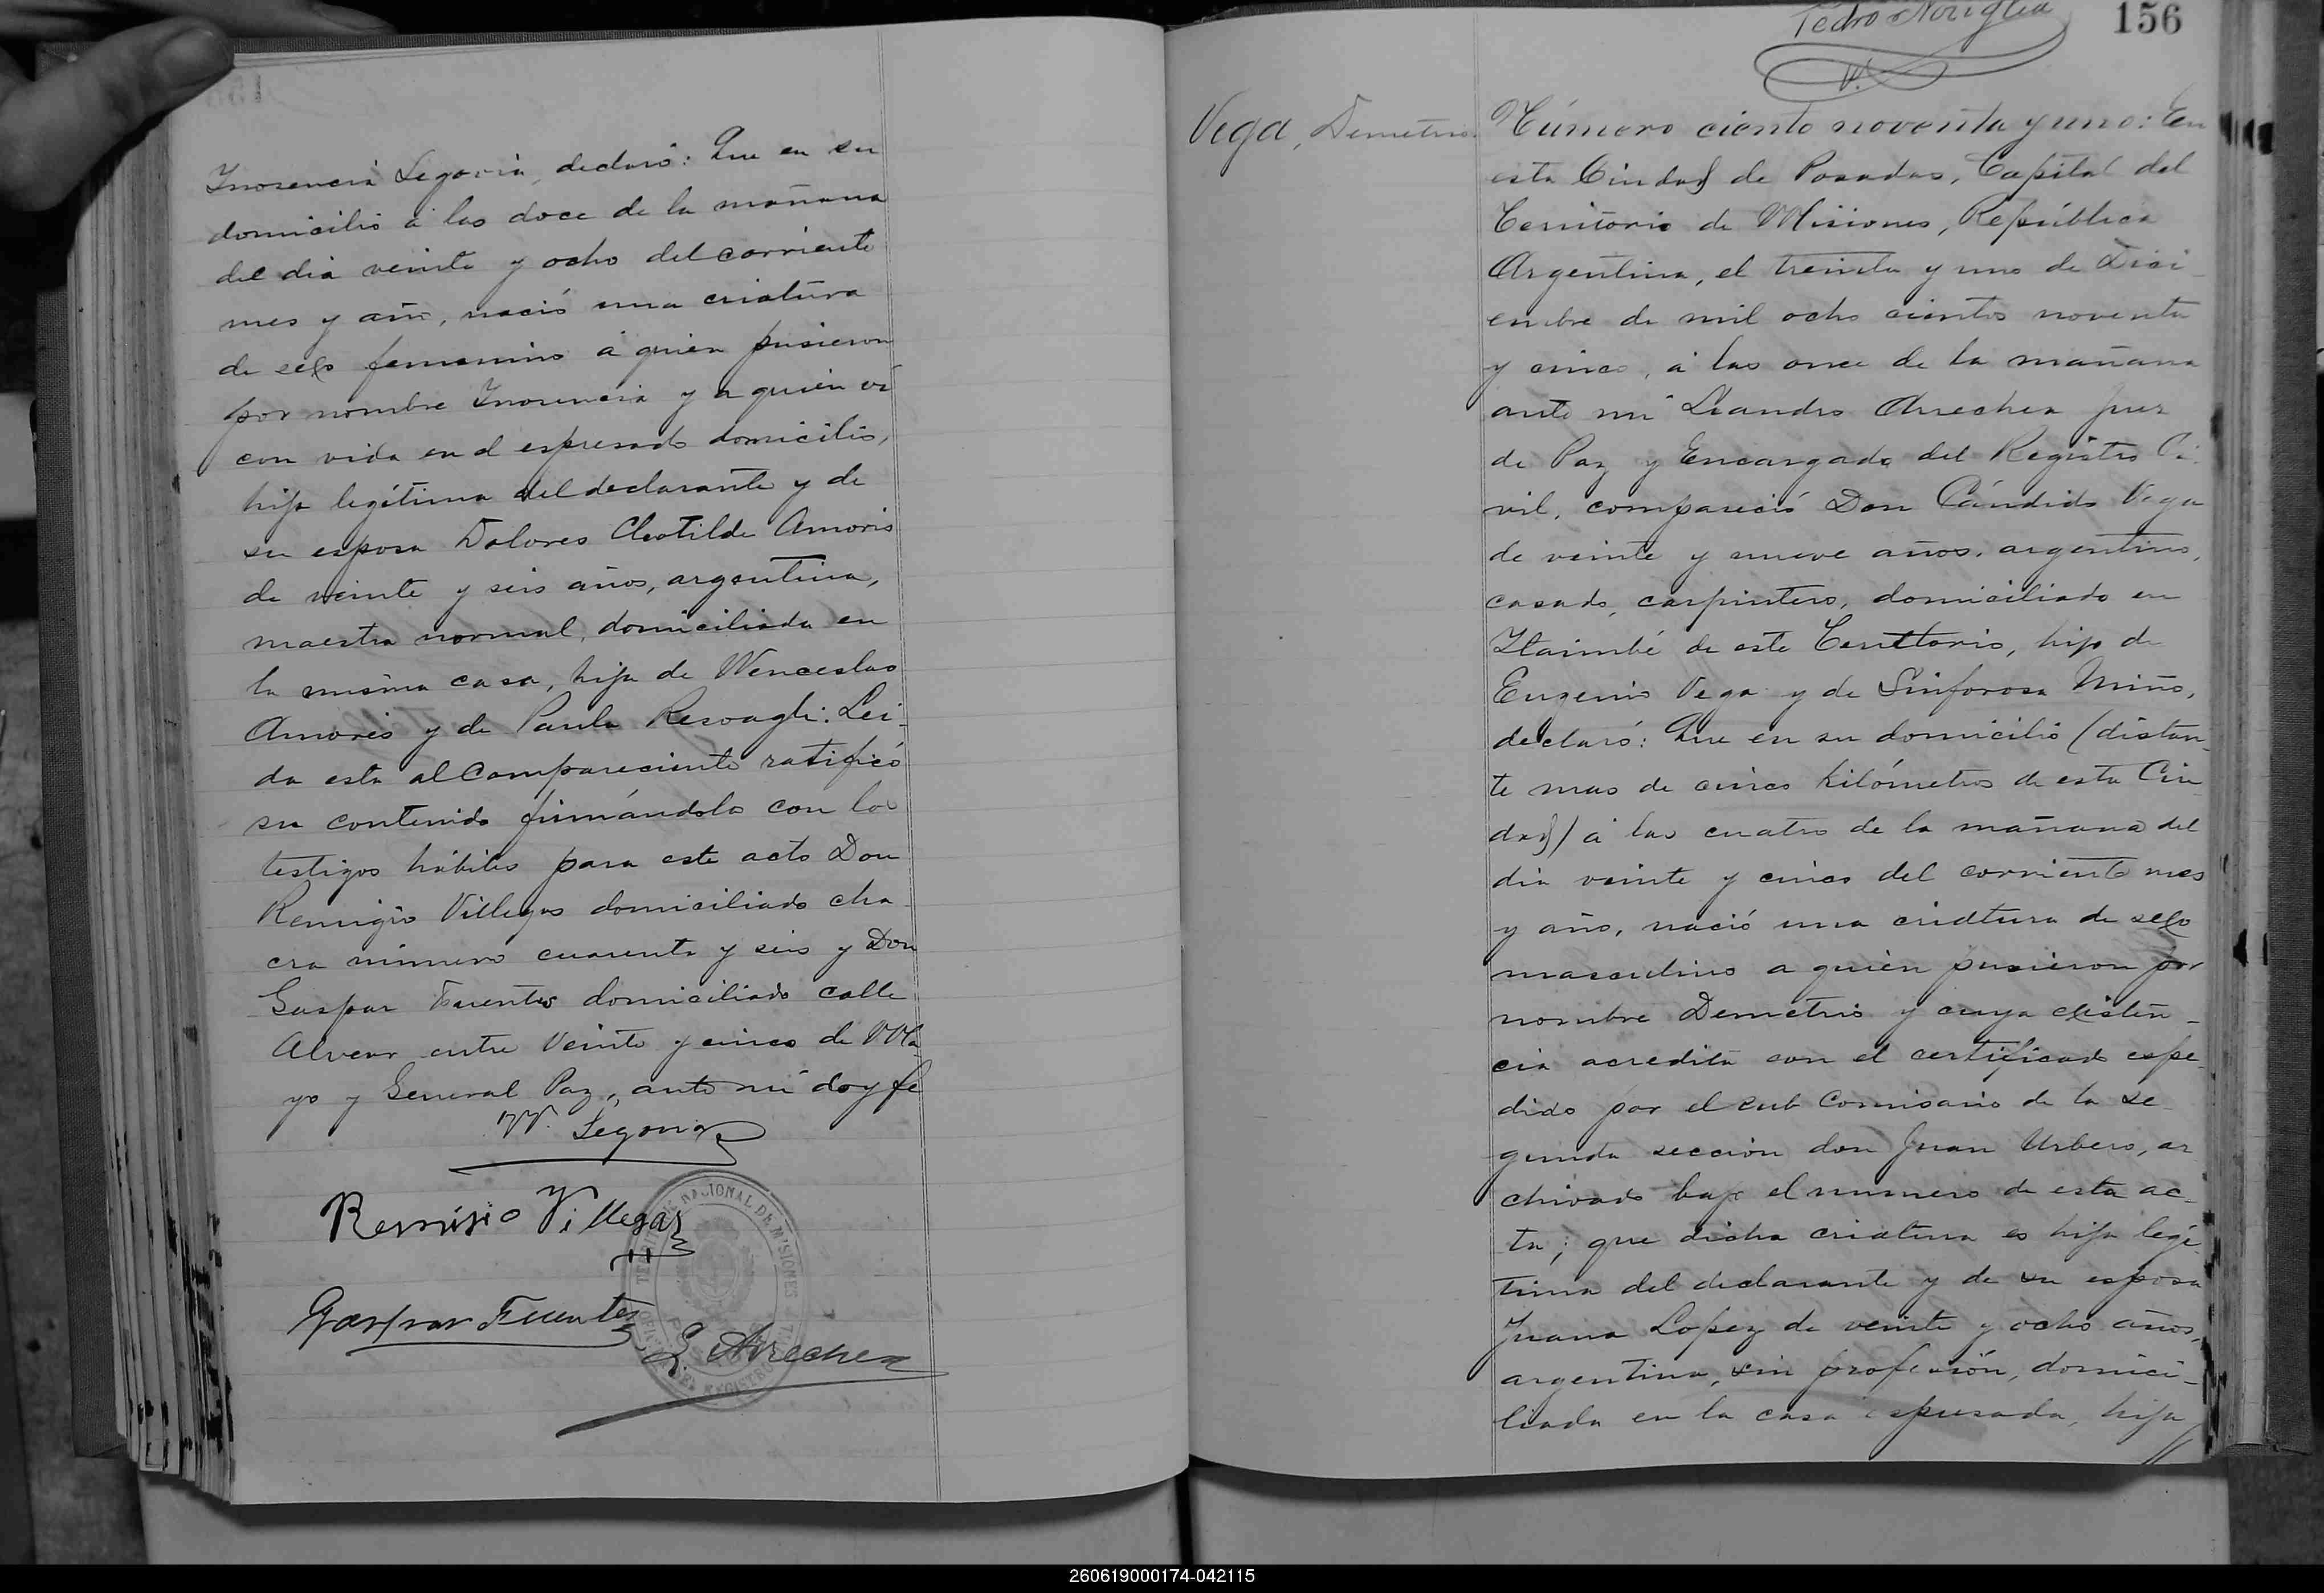 Inosencia Segovia, declaró: Que en su
domicilio á las doce de la mañana
del dia veinte y ocho del corriente
mes y año, nació una criatura
de sexo femenino á quien pusieron
por nombre Inosencia y a quien ví
con vida en el espresado domicilio,
hija legítima del declarante y de
su esposa Dolores Clotilde Amoris
de veinte y seis años, argentina,
maestra normal, domiciliada en
la misma casa, hija de Wenceslao
Amores y de Paula Resoagli: Lei-
da esta al compareciente ratificó
su contenido firmándola con los
testigos hábiles para este acto Don
Remigio Villegas domiciliado cha
cra número cuarenta y seis y Don
Gaspar Fuentes domiciliado calle
Alvear entre Veinte y cinco de Ma
yo y General Paz, ante mí doy fe
Segovia
Remisio Villegas
Gaspar Fuentes
L. Arrechea
156
Vega, Demetrio
Número ciento noventa y uno: En
esta Ciudad de Posadas, Capital del
Territorio de Misiones, República
Argentina, el treinta y uno de Dici
embre de mil ocho cientos noventa
y cinco, á las once de la mañana
ante mí Leandro Arrechea Juez
de Paz y Encargado del Registro Ci-
vil, compareció Don Cándido Vega
de veinte y nueve años, argentino,
casado, carpintero, domiciliado en
Itaimbé de este Territorio, hijo de
Eugenio Vega y de Sinforosa Miño,
declaró: Que en su domicilio (distan-
te mas de cinco kilómetros de esta Ciu
dad) á las cuatro de la mañana del
dia veinte y cinco del corriente mes
y año, nació una criatura de sexo
masculino a quien pusieron por
nombre Demetrio y cuya existen-
cia acredita con el certificado espe-
dido por el sub Comisario de la se
gunda sección don Juan Urbero, ar
chivado bajo el numero de esta ac-
ta; que dicha criatura es hija legi
tima del declarante y de su esposa
Juana Lopez de veinte y ocho años,
argentina, sin profesión, domici-
liada en la casa espresada, hija
260619000174-042115